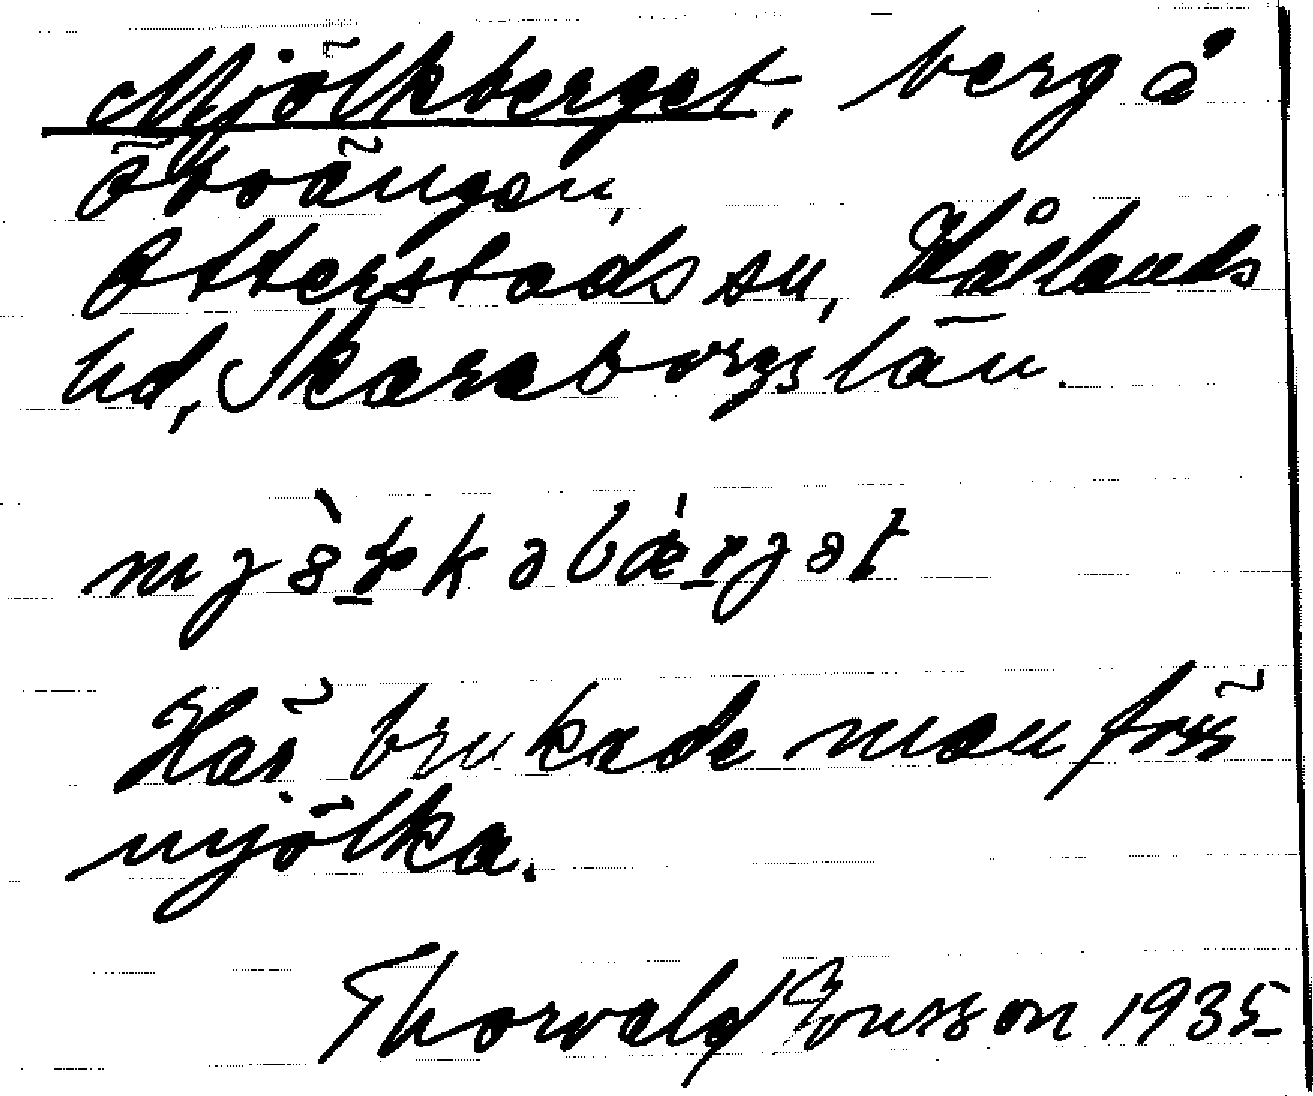 Mjölkberget, berg å
Åboängen,
Otterstads sn, Kållands
hd, Skaraborgs län.
Här brukade man förr
mjölka.
Thorvald Jonsson 1935